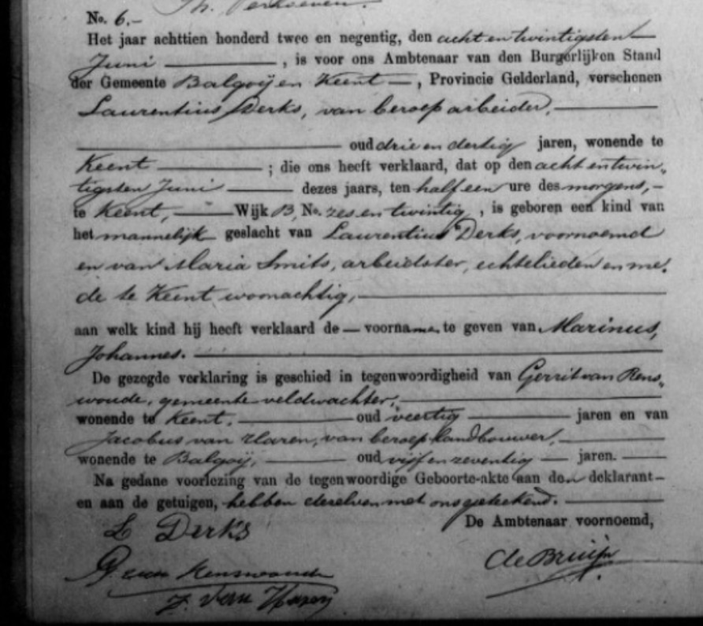 Th. Verhoeven.
No. 6.-
Het jaar achttien honderd twee en negentig, den acht en twintigsten
Juni, is voor ons Ambtenaar van den Burgerlijken Stand
der Gemeente Balgoij en Keent, Provincie Gelderland, verschenen
Laurentius Derks, van beroep arbeider,
oud drie en dertig jaren, wonende te
Keent; die ons heeft verklaard, dat op den acht en twin„
tigsten Juni dezes jaars, ten half een ure des morgens,
te Keent, Wijk B, No. zes en twintig, is geboren een kind van
het mannelijk geslacht van Laurentius Derks, voornoemd
en van Maria Smits, arbeidster, echtelieden en me„
de te Keent woonachtig,
aan welk kind hij heeft verklaard de voorname te geven van Marinus,
Johannes.
De gezegde verklaring is geschied in tegenwoordigheid van Gerrit van Rens„
woude, gemeente veldwachter,
wonende te Keent, oud veertig jaren en van
Jacobus van Haren, van beroep landbouwer,
wonende te Balgoij, oud vijf en zeventig jaren.
Na gedane voorlezing van de tegenwoordige Geboorte-akte aan den deklarant
en aan de getuigen, hebben dezelven met ons geteekend.
De Ambtenaar voornoemd,
L Derks
de Bruijn
G van Renswoude
J. van Haren